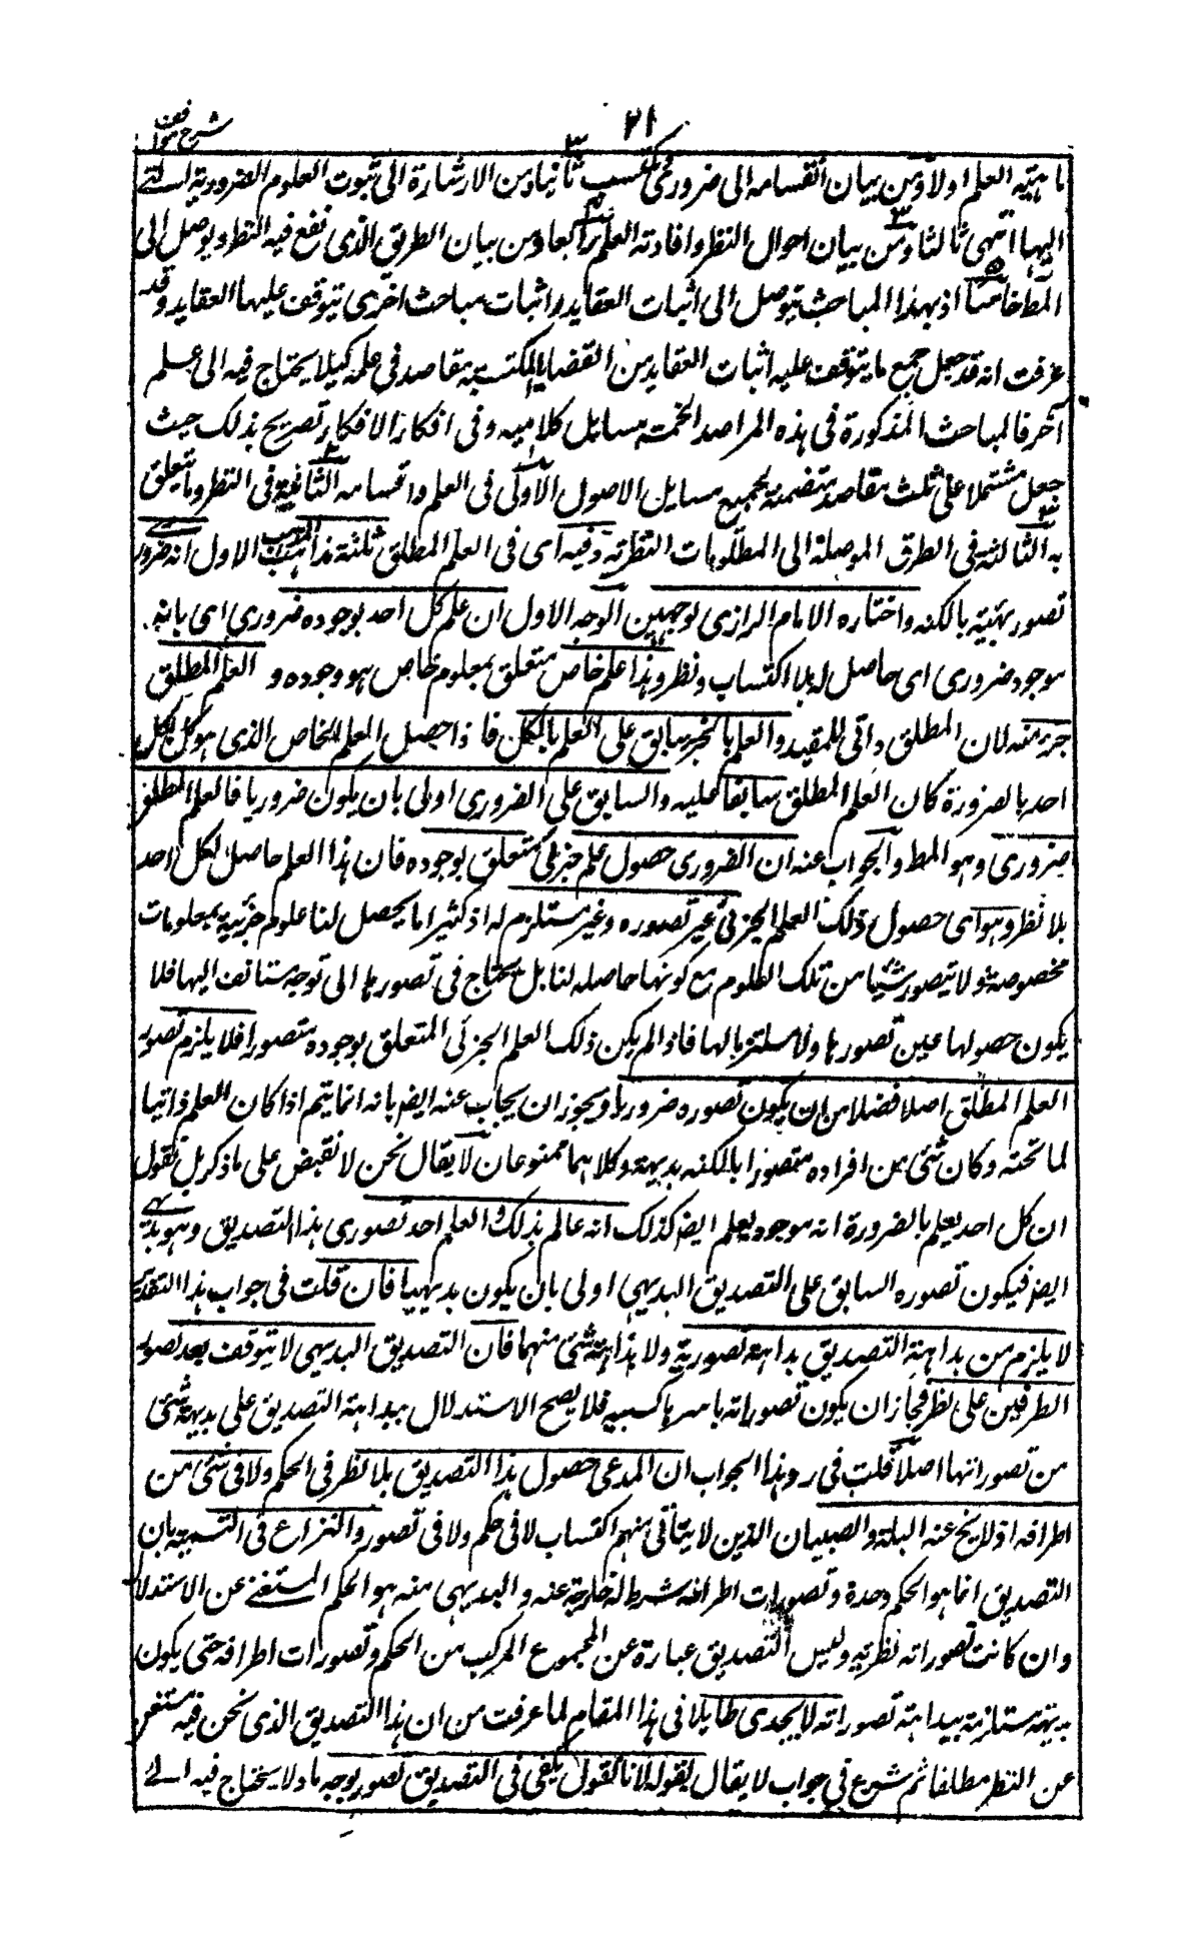 شرح مواقف
٢١
ماهيته العلم اولا ومن بيان انقسامه الى ضروري ومكتسب ثانيا ومن الاشارة الى ثبوت العلوم الضرورية التي
اليها انتهى ثالثا ومن بيان احوال النظر وافادته العلم رابعا ومن بيان الطريق الذي نفع فيه النظر ويوصل الى
المط خامسا اذ بهذا المباحث يتوصل الى اثبات العقايد واثبات مباحث اخرى يتوقف عليها العقايد وقد
عرفت انه قد جعل جميع ما يتوقف عليه اثبات العقايد من القضايا المكتسبه مقاصد في علمه كيلا يحتاج فيه الى علم
آخر فالمباحث المذكورة في هذه المراصد الخمسة مسايل كلاميه وفي افكار الافكار تصريح بذلك حيث
جعل مشتملا على ثلث مقاصد متضمنه بجميع مسايل الاصول الاولى في العلم واقسامه الثانية في النظر وما يتعلق
به الثالثة في الطرق الموصلة الى المطلوبات النظرية وفيه اى في العلم المطلق ثلثة مذاهب المذهب الاول انه ضروري
تصور مهيته بالكنه واختاره الامام الرازي لوجهين الوجه الاول ان علم كل احد بوجوده ضروري اى بانه
موجود ضروري اى حاصل له بلا اكتساب ونظر وهذا علم خاص متعلق بمعلوم خاص هو وجوده و العلم المطلق
جزء منه لان المطلق ذاتي للمقيد والعلم بالجزء سابق على العلم بالكل فاذا حصل العلم الخاص الذي هو كل لكل
احد بالضرورة كان العلم المطلق سابقا عليه والسابق على الضروري اولى بان يكون ضروريا فالعلم المطلق
ضروري وهو المط والجواب عنه ان الضروري حصول علم جزئي متعلق بوجوده فان هذا العلم حاصل لكل احد
بلا نظر وهو اى حصول ذلك العلم الجزئى غير تصوره وغير مستلزم له اذ كثيرا ما يحصل لنا علوم جزئيه بمعلومات
مخصوصة ولا يتصور شيئا من تلك العلوم مع كونها حاصله لنا بل يحتاج في تصورها الى توجه مستانف اليها فلا
يكون حصولها عين تصورها ولا مستلزما لها فاذا لم يكن ذلك العلم الجزئي المتعلق بوجوده متصورا فلا يلزم تصور
العلم المطلق اصلا فضلا من ان يكون تصوره ضروريا ويجوز ان يجاب عنه ايض بانه انما يتم اذا كان العلم ذاتيا
لما تحته وكان شئ من افراده متصورا بالكنه بديهة وكلاهما ممنوعان لا يقال نحن لا نقتصر على ما ذكر بل نقول
ان كل احد يعلم بالضرورة انه موجود يعلم ايض كذلك انه عالم بذلك والعلم احد تصوري هذا التصديق وهو بديهي
ايض فيكون تصوره السابق على التصديق البديهي اولى بان يكون بديهيا فان قلت في جواب هذا التقدير
لا يلزم من بداهة التصديق بداهة تصوريه ولا بداهة شئ منهما فان التصديق البديهي لا يتوقف بعد تصور
الطرفين على نظر فجاز ان يكون تصوراته باسرها كسبيه فلا يصح الاستدلال ببداهة التصديق على بديهة شئ
من تصوراتها اصلا قلت في رد هذا الجواب ان المدعى حصول هذا التصديق بلا نظر في الحكم ولا في شئ من
اطرافه اذ لا يخ عنه البله والصبيان الذين لا يتاتى منهم اكتساب لا في حكم ولا في تصور والنزاع في التسمية بان
التصديق انما هو الحكم وحده وتصورات اطرافه شرط له خارجة عنه والبديهي منه هو الحكم المستغنى عن الاستدلال
وان كانت تصوراته نظريه وليس التصديق عبارة عن المجموع المركب من الحكم وتصورات اطرافه حتى يكون
بديهته مستلزمة ببداهة تصوراته لا يجدى طايلا في هذا المقام لما عرفت من ان هذا التصديق الذي نحن فيه مستغن
عن النظر مطلقا ثم شرع في جواب لا يقال بقوله لانا نقول يكفى في التصديق تصور بوجه ما ولا يحتاج فيه الى